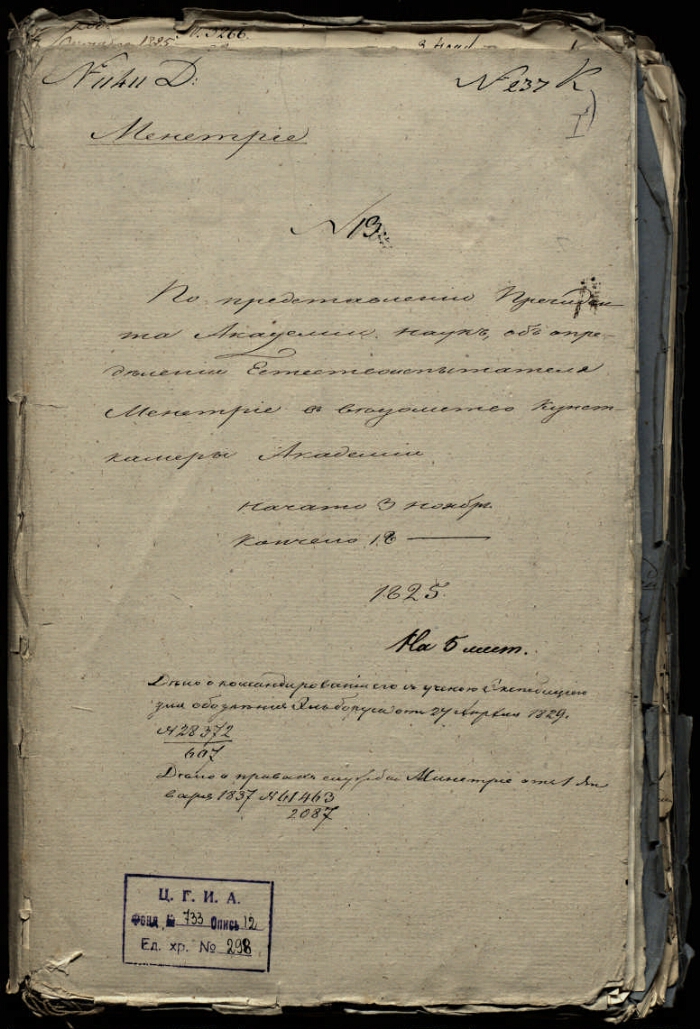 № 3266.
1825
№ 1141 Д:
№ 237 К
I
Менетріе
№ 13
По представленію Президен-
та Академіи наукъ, объ опре-
дѣленіи Естествоиспытателя
Менетріе въ вѣдомство Кунст-
камеры Академіи
Начато 3 ноября.
Кончено 18 —
1825.
На 5 лист.
Дѣло о командированіи его въ ученую Экспедицію
для обозрѣнія Эльборуса отъ 27 Апрѣля 1829.
№ 28372
607
Дѣло о правахъ службы Минетріе отъ 1 Ян
варя 1837 № 61463
2087
Ц. Г. И. А.
Фонд № 733 Опись 12
Ед. хр. № 298